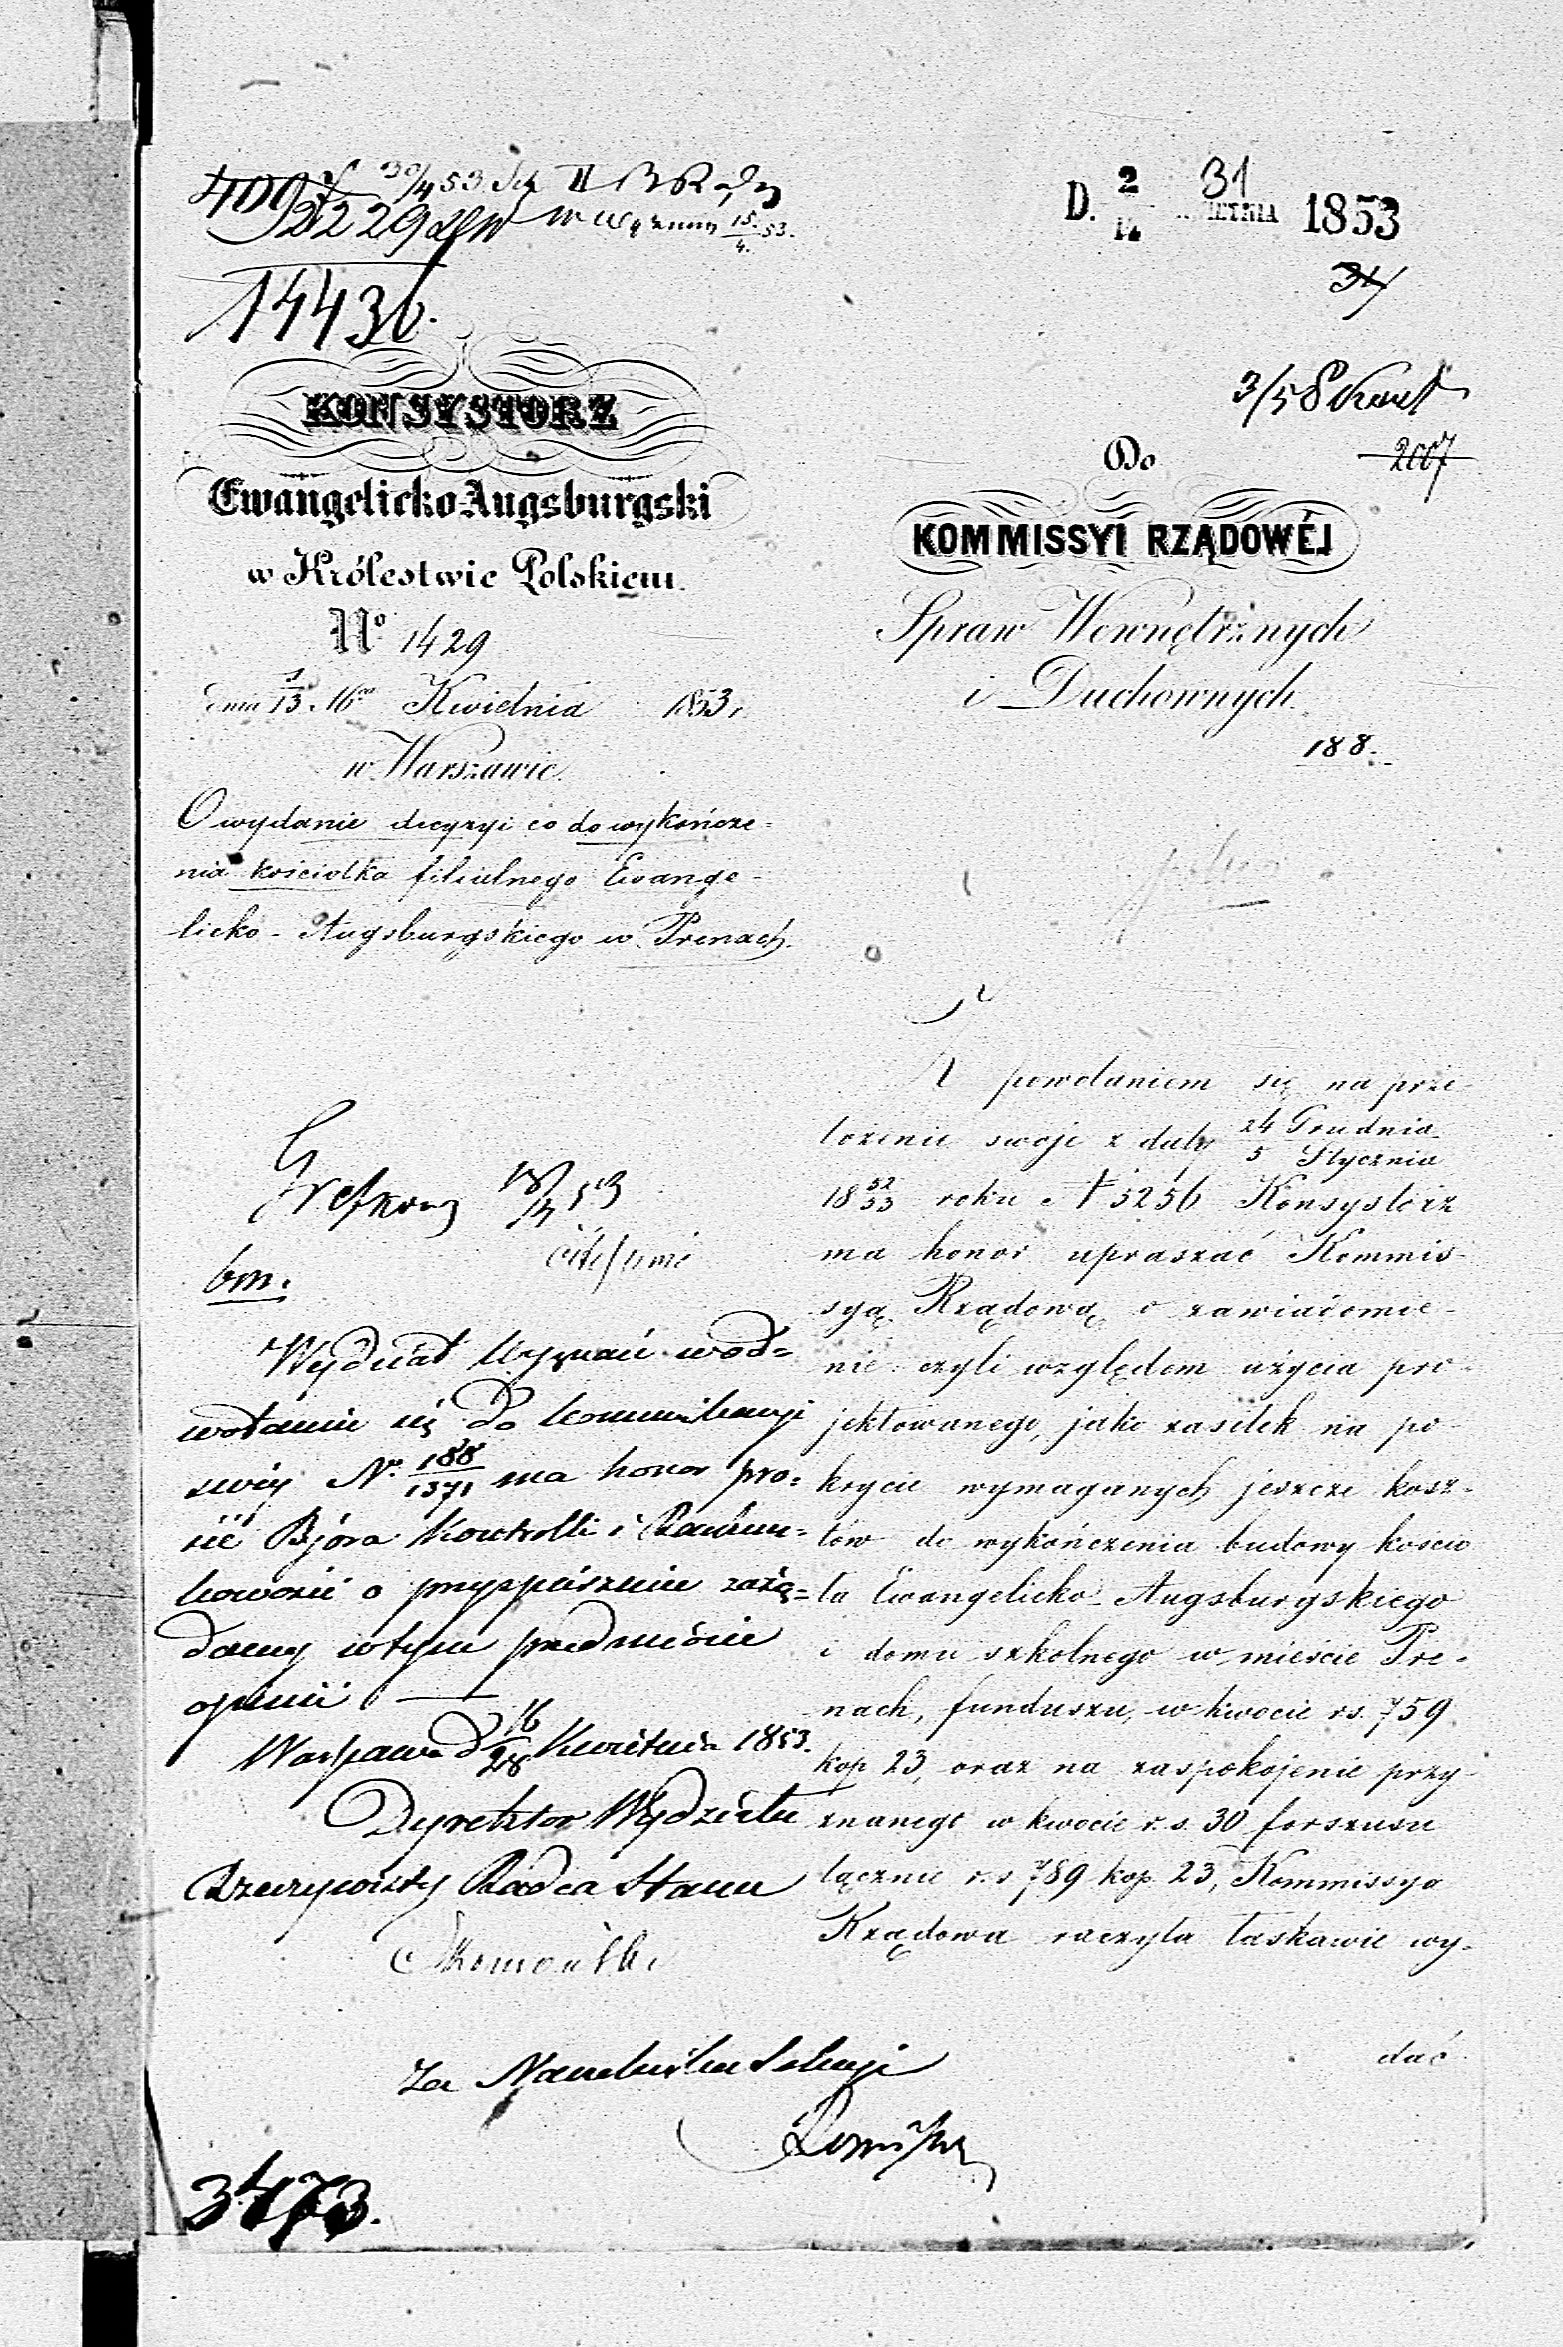 14436.
D. 2/14 KWIETNIA 1853
31
KONSYSTORZ
Ewangelicko Augsburgski
w Królestwie Polskiem.
No 1429
dnia 1/13. 16go Kwietnia 1853,
w Warszawie.
O wydanie decyzyi co do wykończe-
nia kościołka filialnego Ewange-
licko-Augsburgskiego w Prenach.
3/5
2007
Do
KOMMISSYI RZĄDOWÉJ
Spraw Wewnętrznych
i Duchownych.
188.
Z powołaniem się na prze-
łożenie swoje z daty 24 Grudnia / 5 Stycznia
18 52/53 roku N 5256 Konsystorz
ma honor upraszać Kommis-
syą Rządową o zawiadomie-
nie czyli względem użycia pro-
jektowanego, jako zasiłek na po-
krycie wymaganych jeszcze kosz-
tów do wykończenia budowy kościo
ła Ewangelicko-Augsburgskiego
i domu szkolnego w mieście Pre-
nach, funduszu, w kwocie rs. 759
kop 23, oraz na zaspokojenie przy-
znanego w kwocie r. s. 30 forszusu
łącznie r. s 789 kop. 23, Kommissya
Rządowa raczyła łaskawie wy-
dać
bm.
Wydział Wyznań wod=
wołaniu się do kommunikacyi
swéj No. 188/1371 ma honor pro=
sić Bjóra Kontrolli i Rachun-
kowości o przyspieszenie zażą=
danéj w tym przedmiocie
opinii
Warszawa d 16/28 Kwietnia 1853.
Dyrektor Wydziału
Rzeczywisty Radca Stanu
Za Naczelnika Sekcyi
3473.